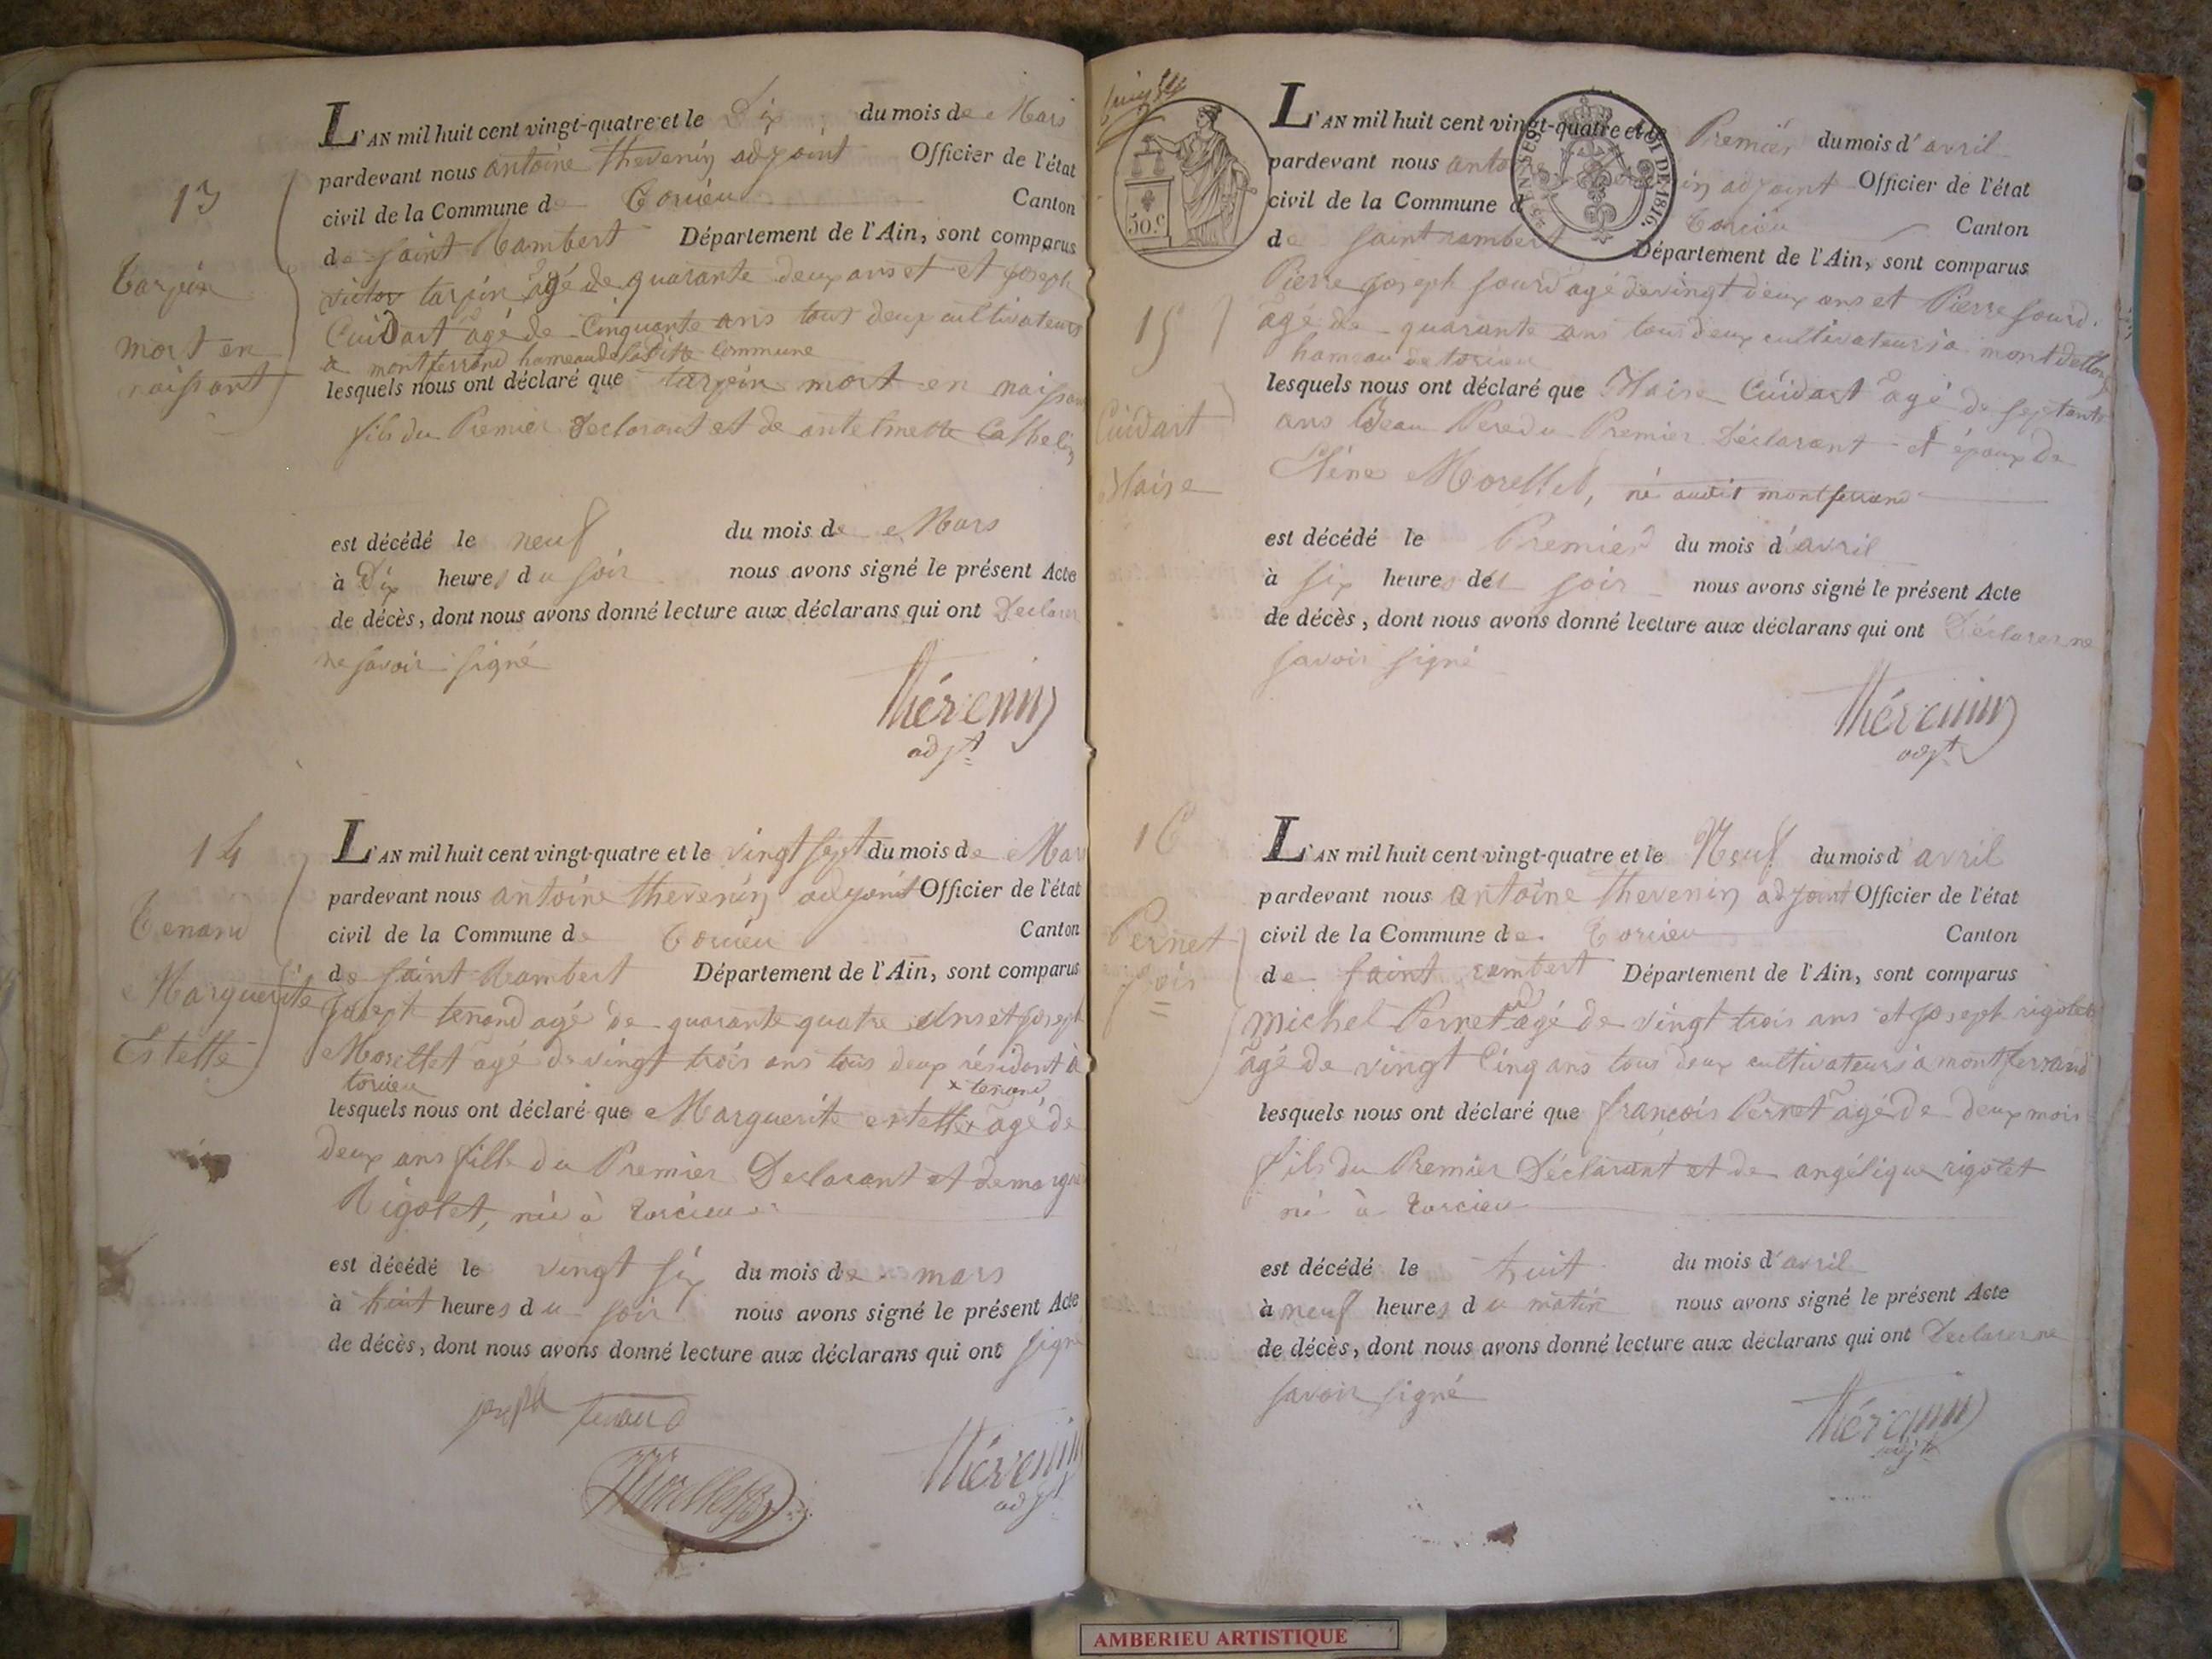 13
Tarpin
mort en
naissant
L'AN mil huit cent vingt-quatre et le Dix du mois de Mars
pardevant nous antoine thevenin adjoint Officier de l'état
civil de la Commune de Torcieu Canton
de Saint Rambert Département de l'Ain, sont comparus
victor tarpin âgé de quarante deux ans et et joseph
Cuidart âgé de Cinquante ans tout deux cultivateurs
à montferrand hameau de laditte Commune
lesquels nous ont déclaré que tarpin mort en naissant
fils du Premier Déclarant et de antelmette
est décédé le neuf du mois de Mars
à Dix heures du soir nous avons signé le présent Acte
de décès, dont nous avons donné lecture aux déclarans qui ont Déclarer
ne savoir signé
Thévenin
adjt
14
Tenand
Marguerite
Estelle
L'AN mil huit cent vingt-quatre et le vingt sept du mois de Mars
pardevant nous antoine thevenin adjoint Officier de l'état
civil de la Commune de Torcieu Canton
de Saint Rambert Département de l'Ain, sont comparus
joseph tenand agé de quarante quatre ans et joseph
Morellet agé de vingt trois ans tous deux résidant à
torcieu x tenand,
lesquels nous ont déclaré que Marguerite estelle x agé de
deux ans fille du Premier Declarant et de
Rigolet, née à torcieu
est décédé le vingt six du mois de mars
à huit heures du soir nous avons signé le présent Acte
de décès, dont nous avons donné lecture aux déclarans qui ont signé
joseph tenand
Morellet
Thévenin
adjt
50.c
LOI DE 1816.
15
Cuidart
Blaise
L'AN mil huit cent vingt-quatre et le Premier du mois d'avril
pardevant nous antoine thevenin adjoint Officier de l'état
civil de la Commune de Torcieu Canton
de saint rambert Département de l'Ain, sont comparus
Pierre joseph sourd agé de vingt deux ans et Pierre sourd
agé de quarante ans tous deux cultivateurs à
hameau de torcieu
lesquels nous ont déclaré que Blaise Cuidart agé de septante
ans Beau Pere du Premier Déclarant et époux de
Morellet, né audit montferrand
est décédé le Premier du mois d'avril
à six heures du soir nous avons signé le présent Acte
de décès, dont nous avons donné lecture aux déclarans qui ont Déclarer ne
savoir signé
Thévenin
adjt
16
Pernet
L'AN mil huit cent vingt-quatre et le Neuf du mois d'avril
pardevant nous antoine thevenin adjoint Officier de l'état
civil de la Commune de Torcieu Canton
de saint rambert Département de l'Ain, sont comparus
Michel Pernet agé de vingt trois ans et joseph rigolet
agé de vingt Cinq ans tous deux cultivateurs à montferrand
lesquels nous ont déclaré que françois Pernet agé de deux mois
fils du Premier Déclarant et de angélique rigolet
né à torcieu
est décédé le huit du mois d'avril
à neuf heures du matin nous avons signé le présent Acte
de décès, dont nous avons donné lecture aux déclarans qui ont Declarer ne
savoir signé
Thévenin
adjt
AMBERIEU ARTISTIQUE